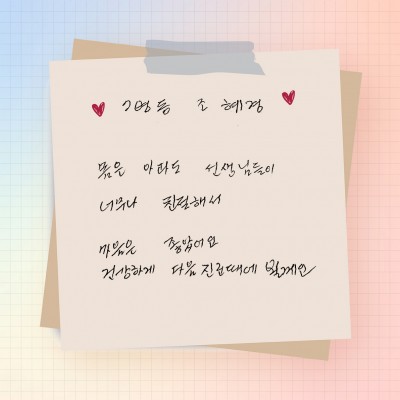 2병동 조혜경
몸은 아파도 선생님들이
너무나 친절해서
마음은 좋았어요
건강하게 다음 진료때에 뵐게요